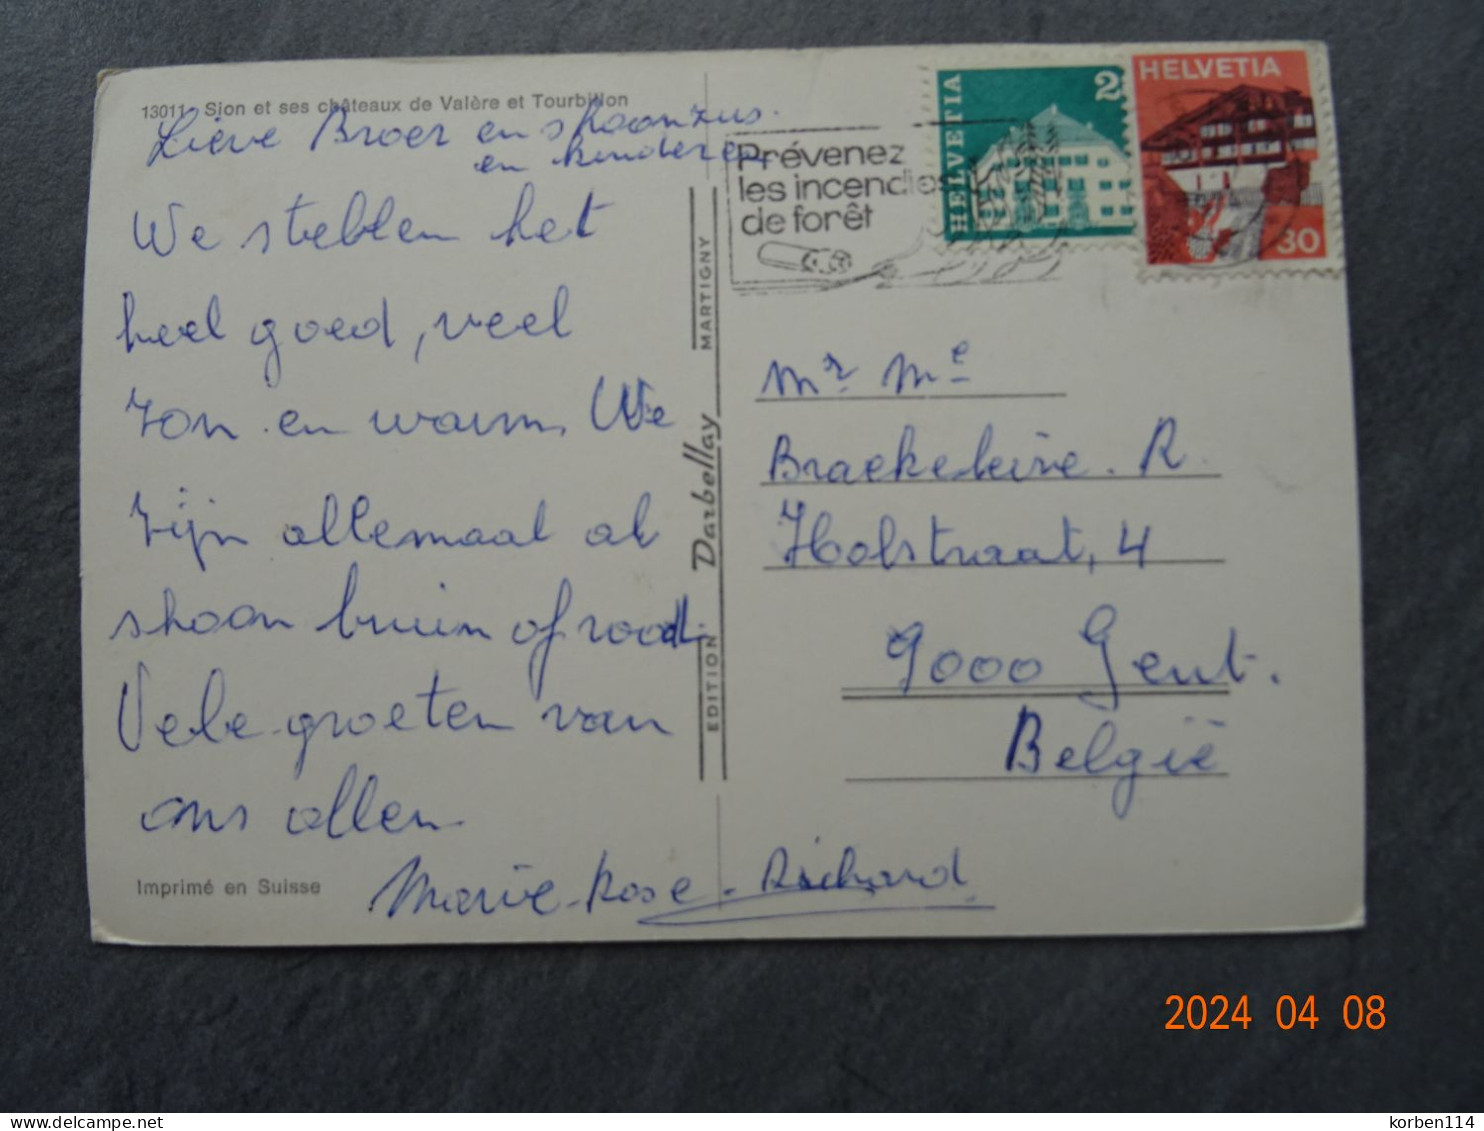 13011 Sion et ses châteaux de Valère et Tourbillon
Lieve Broer en shoonzus.
en kinderen
We steblen het
heel goed, veel
zon en warm. We
zijn allemaal al
shoon bruin of rood.
Vele groeten van
ons allen
Marie-Rose - Richard
Imprimé en Suisse
EDITION Darbellay MARTIGNY
Prévenez
les incendies
de forêt
HELVETIA 2
HELVETIA
30
Mr Me
Braekeleire. R.
Holstraat, 4
9000 Gent.
België
2024 04 08
korben114